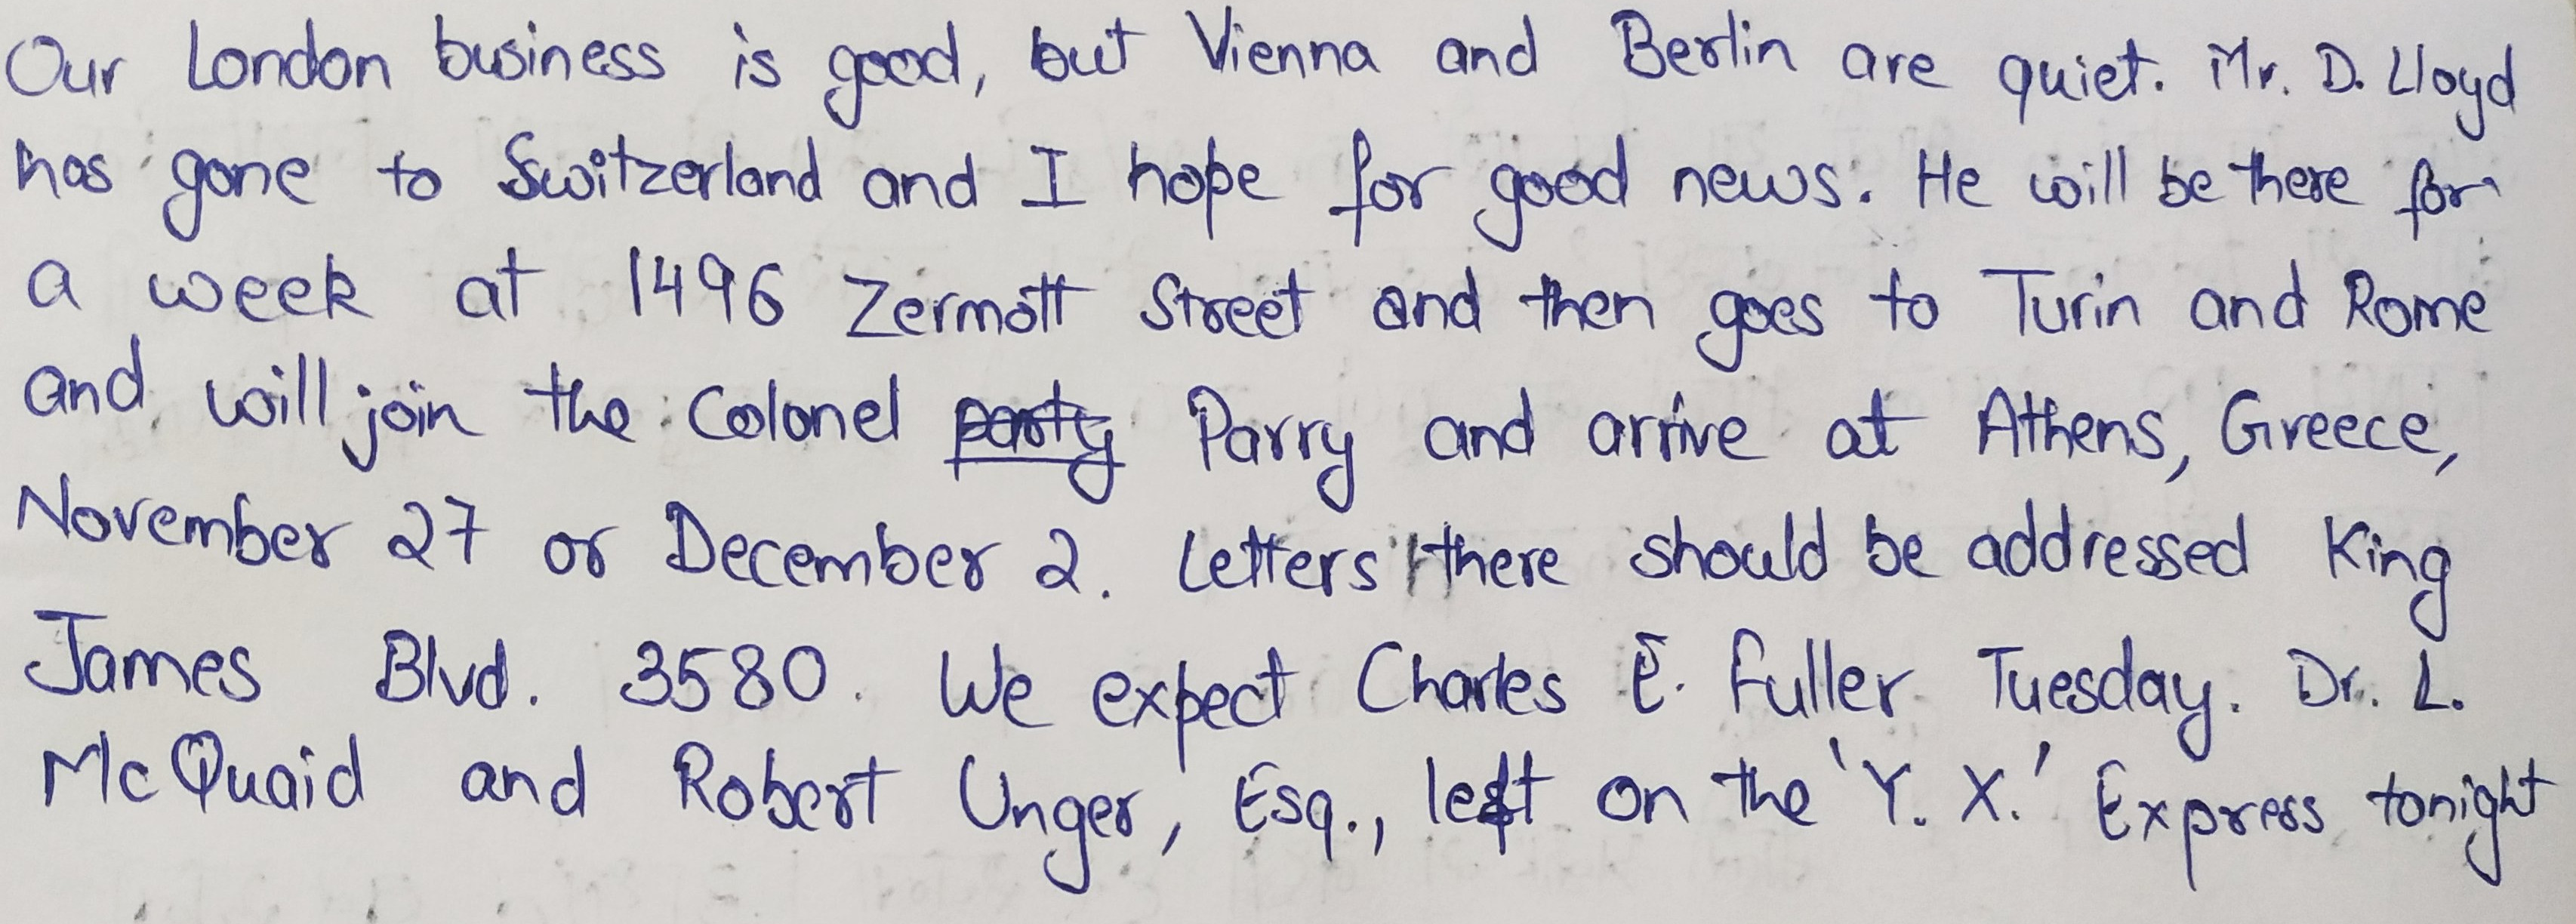 Our London business is good, but Vienna and Berlin are quiet. Mr. D. Lloyd
has gone to Switzerland and I hope for good news. He will be there for
a week at 1496 Zermott Street and then goes to Turin and Rome
and will join the Colonel party Parry and arrive at Athens, Greece,
November 27 or December 2. Letters there should be addressed King
James Blvd. 3580. We expect Charles E. Fuller Tuesday. Dr. L.
McQuaid and Robert Unger, Esq., left on the 'Y. X.' Express tonight